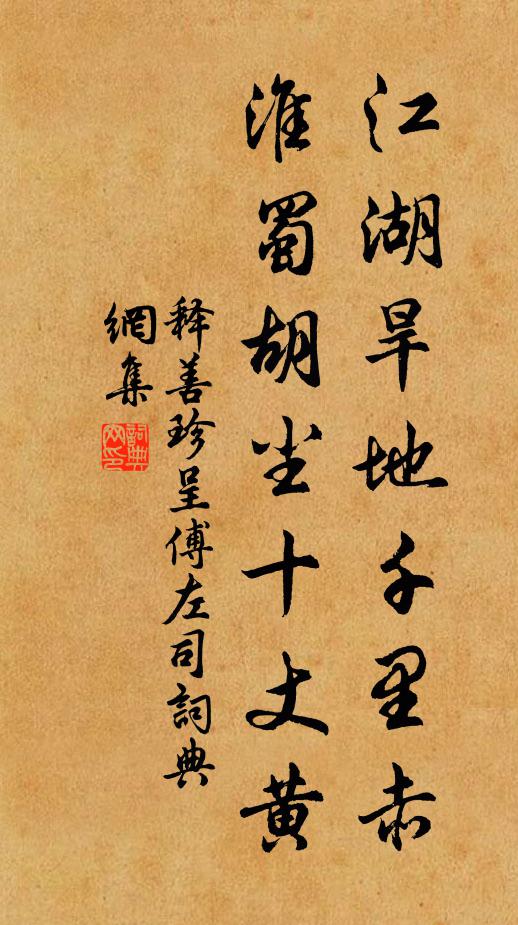 江湖旱地千里赤
淮蜀胡尘十丈黄
释善珍呈傅左司詞典
網集
詞典網印